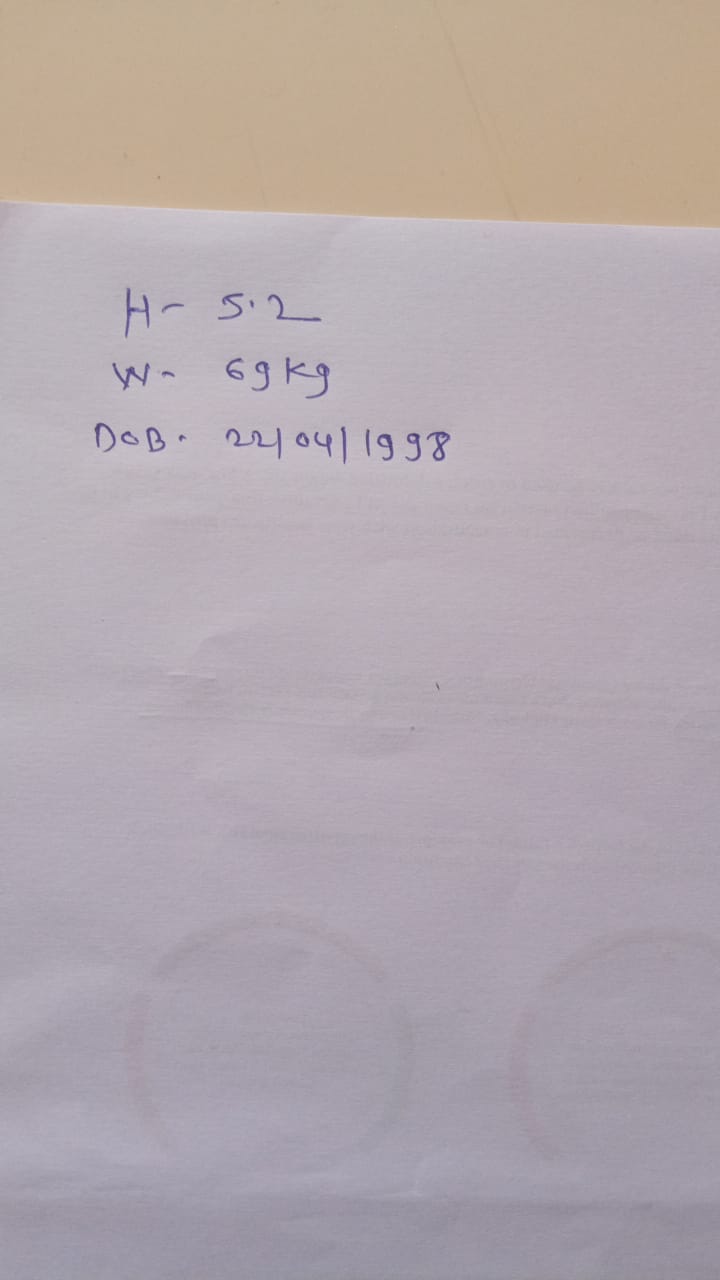 H- 5.2
W- 69 kg
DOB. 22/04/1998